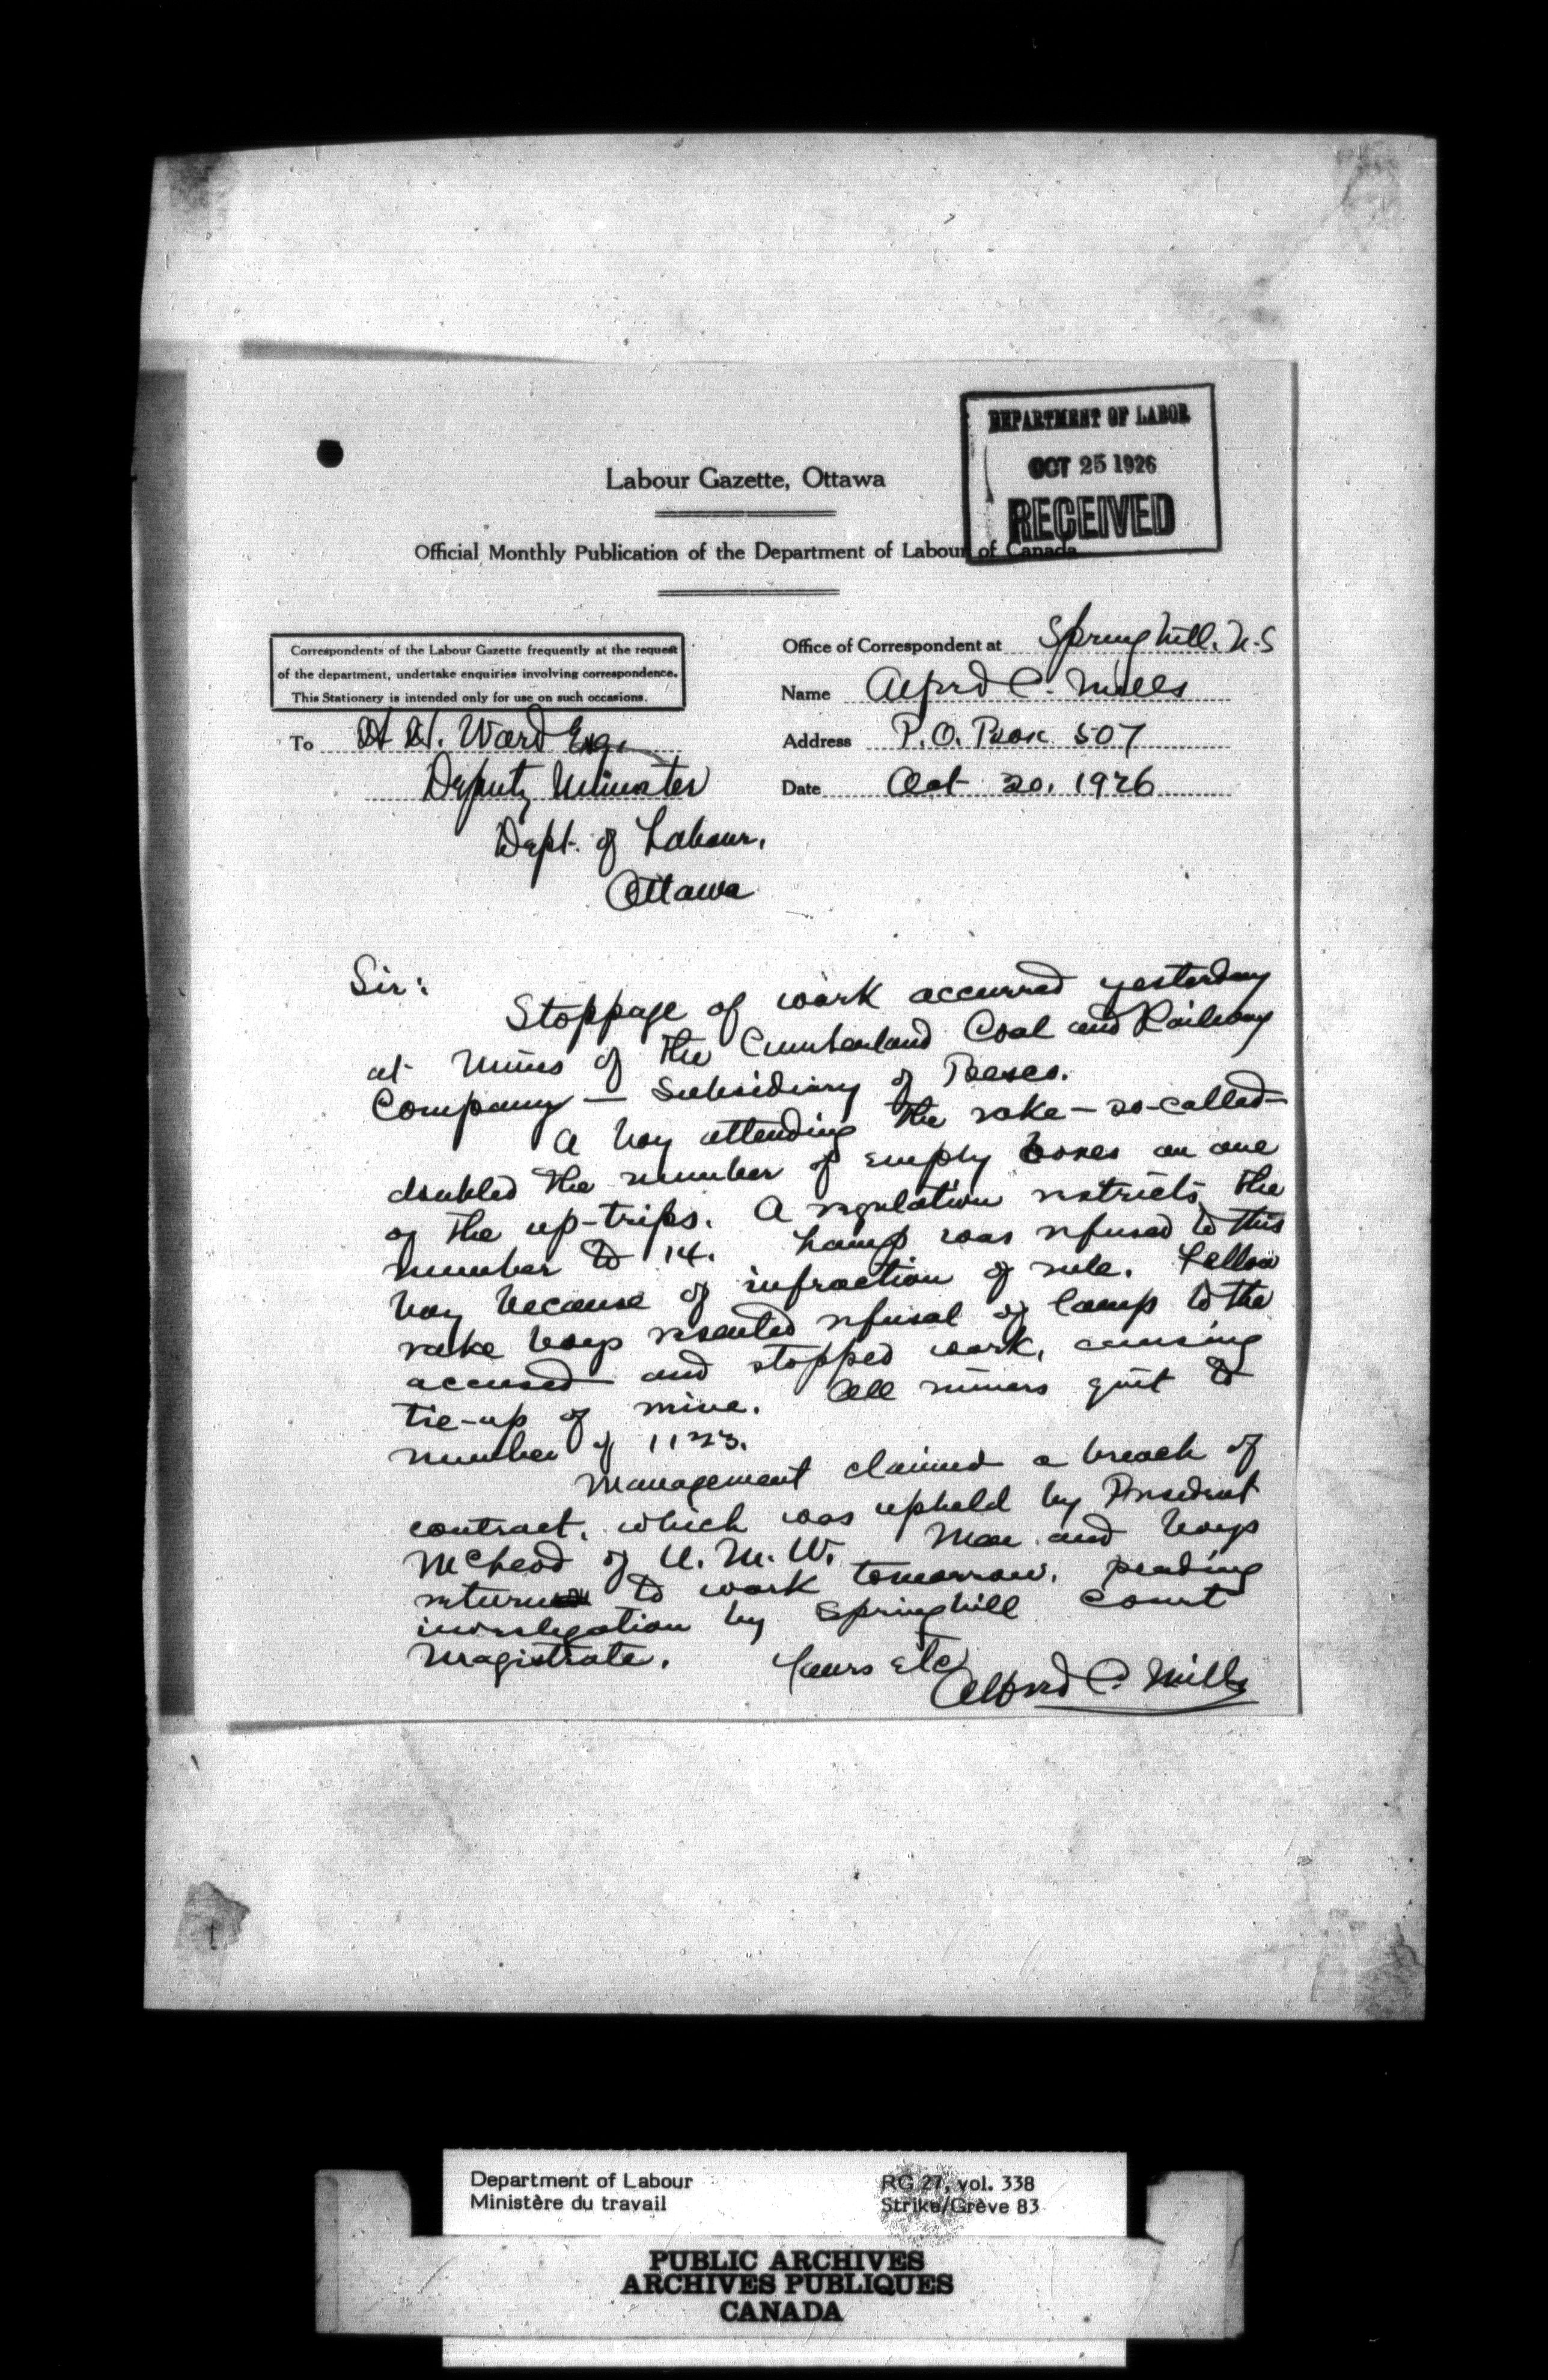 DEPARTMENT OF LABOR
OCT 25 1926
RECEIVED
Labour Gazette, Ottawa
Official Monthly Publication of the Department of Labour of Canada
Correspondents of the Labour Gazette frequently at the request
of the department, undertake enquiries involving correspondence.
This Stationery is intended only for use on such occasions.
Office of Correspondent at Springhill. N.S
Name Alfred C. Mills
Address P.O. Box 507
Date Oct 20. 1926
To H H. Ward Esq.
Deputy Minister
Dept. of Labour,
Ottawa
Sir:
Stoppage of work occurred yesterday
at mines of the Cumberland Coal and Railway
Company — Subsidiary of Besco.
A boy attending the rake — so-called —
doubled the number of empty boxes on one
of the up-trips. A regulation restricts the
number to 14. Lamp was refused to this
boy because of infraction of rule. Fellow
rake boys resented refusal of lamp to the
accused and stopped work, causing
tie-up of mine. All miners quit to
number of 1123.
Management claimed a breach of
contract, which was upheld by President
McLeod of U. M. W. Men and boys
return to work tomorrow, pending
investigation by Springhill Court
Magistrate.
Yours etc
Alfred C. Mills
Department of Labour
Ministère du travail
RG 27, vol. 338
Strike/Grève 83
PUBLIC ARCHIVES
ARCHIVES PUBLIQUES
CANADA